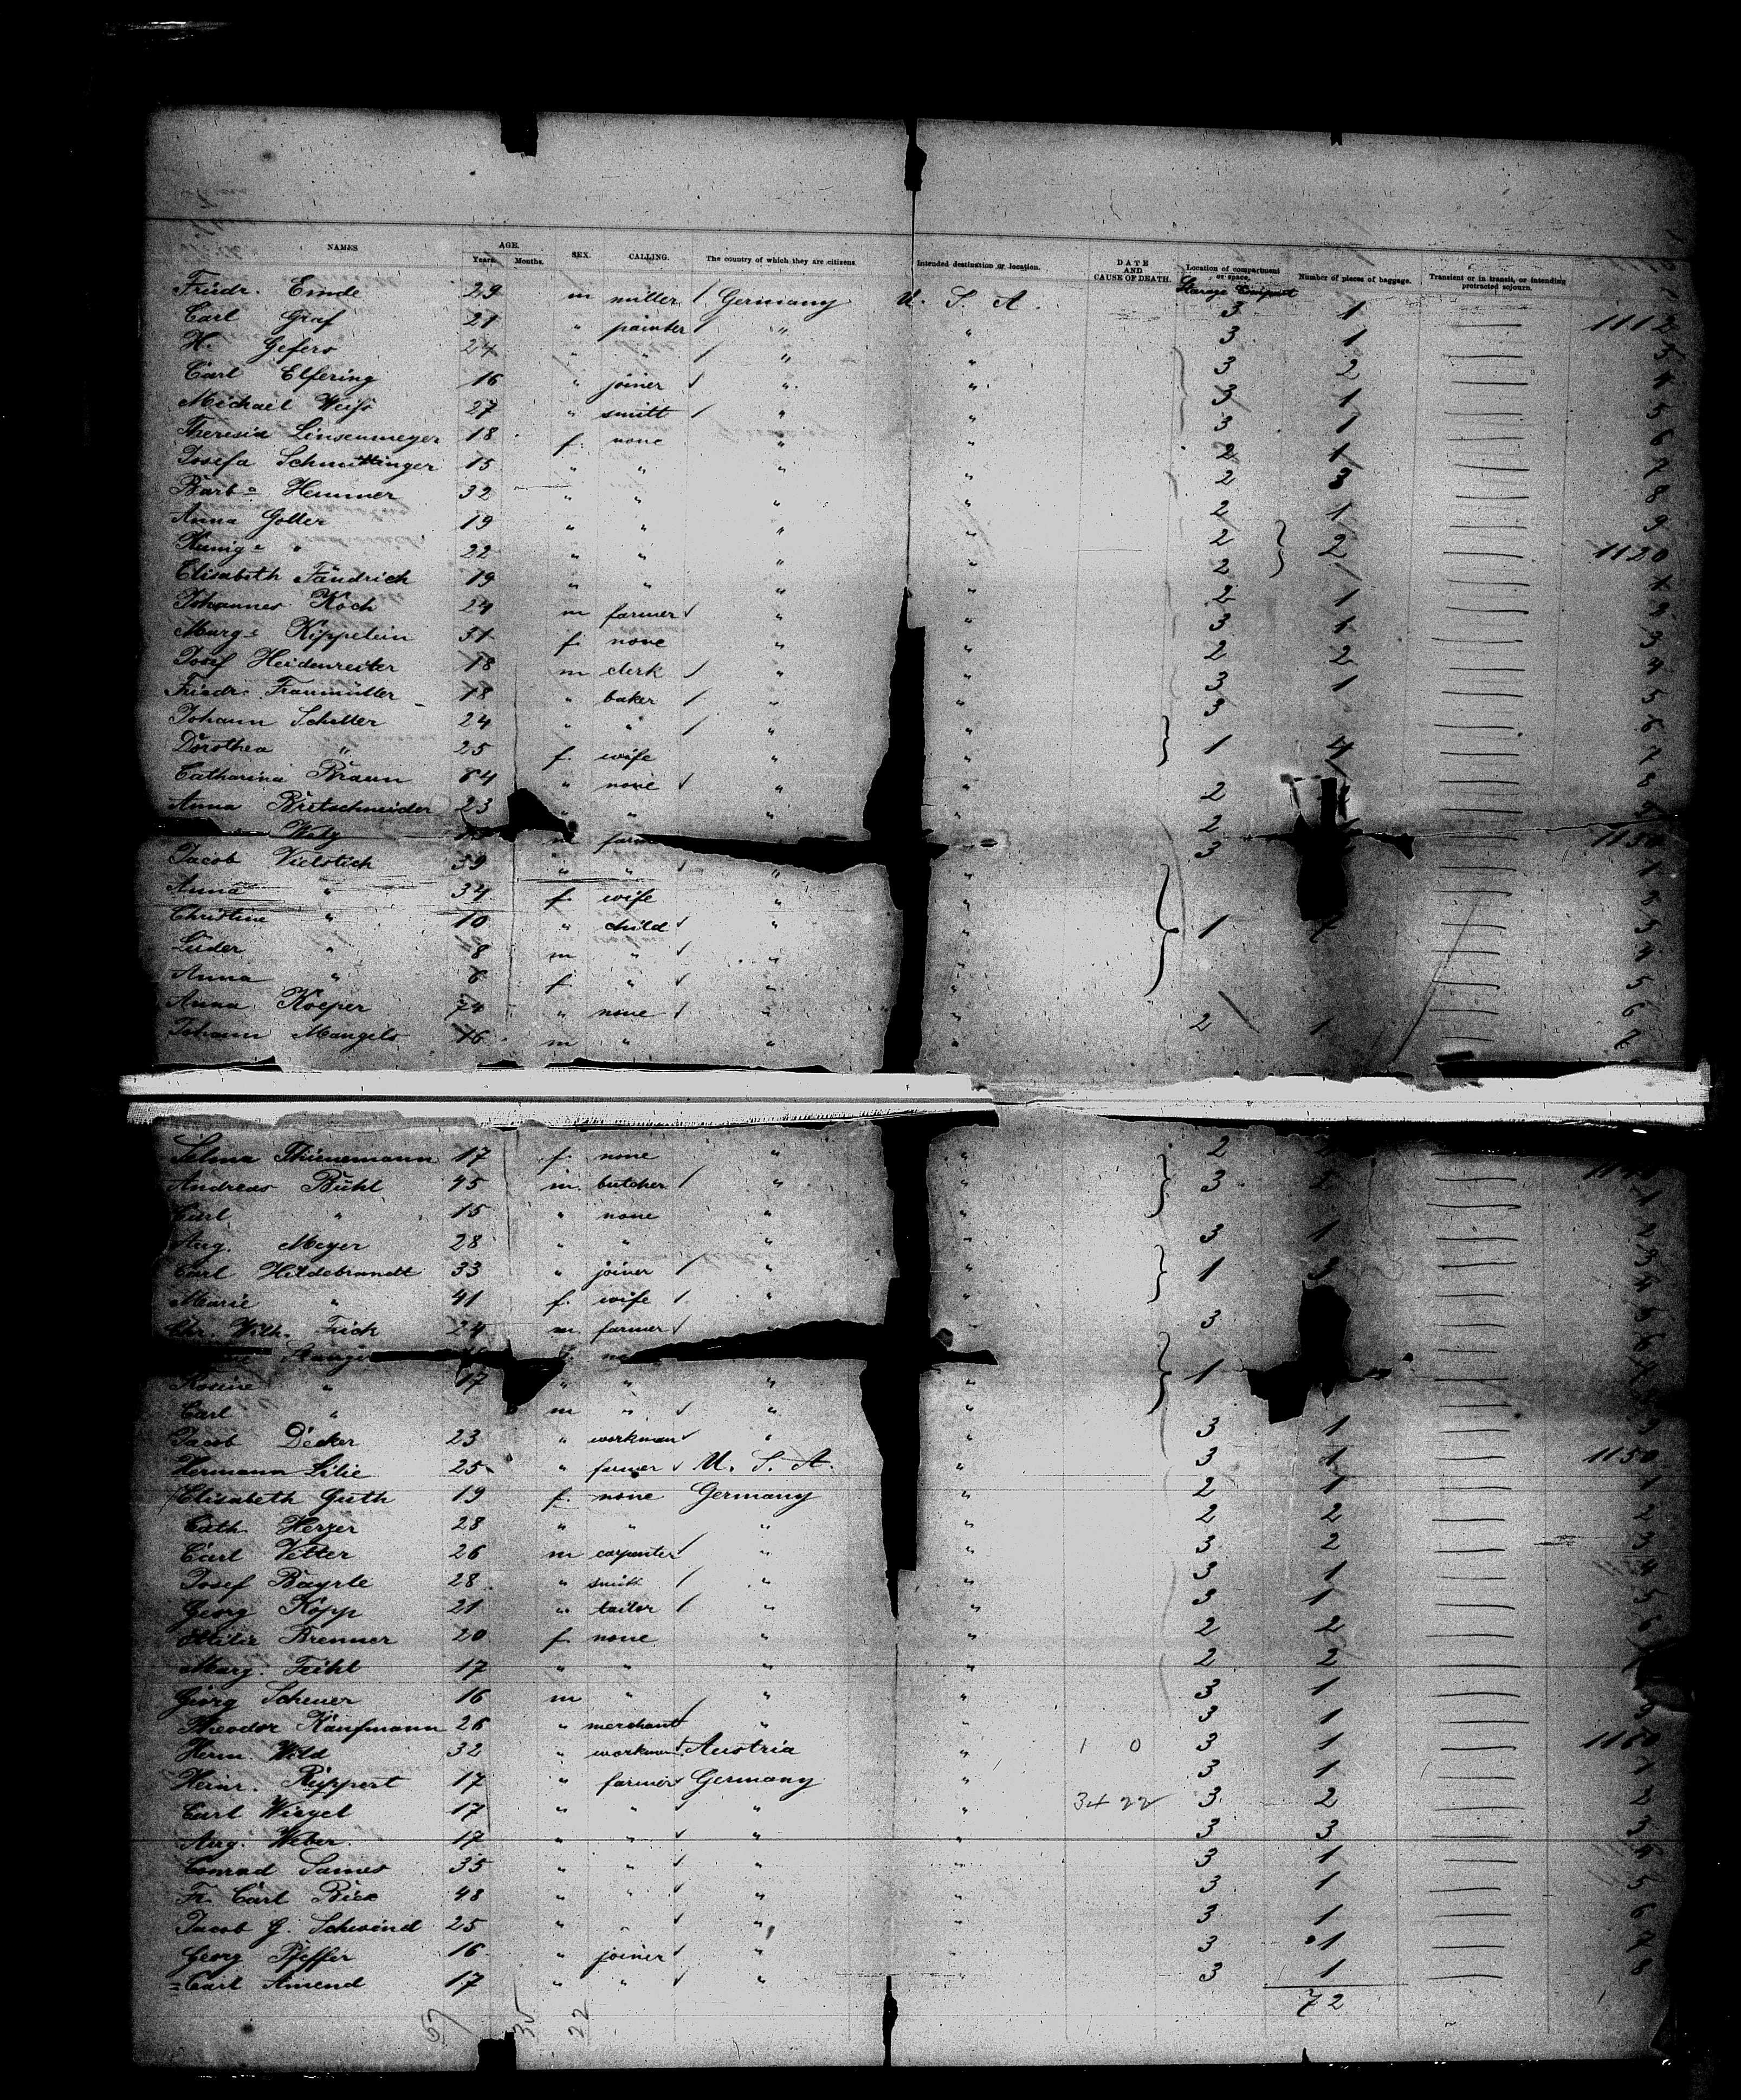 NAMES AGE. Years. Months. SEX. CALLING. The country of which they are citizens. Intended destination or location. DATE AND CAUSE OF DEATH. Location of compartment or space. Number of pieces of baggage. Transient or in transit, or intending protracted sojourn.
Friedr. Emde 29 m miller / Germany U. S. A. 3 1
Carl Graf 21 " painter / " " 3 1 1112
H. Gefers 24 " " / " " 3 2 3
Carl Elfering 16 " joiner / " " 3 1 4
Michael Weifs 27 " smitt / " " 3 1 5
Theresia Linsenmeyer 18 f. none " " 2 1 6
Josefa Schmuttinger 15 " " " " 2 3 7
Barba Hemmer 32 " " " " 2 1 8
Anna Goller 19 " " " " 2 2 9
Kunig. " 22 " " " " 2 1120
Elisabeth Fändrich 19 " " " " 2 1 1
Johannes Koch 24 m farmer / " " 3 1 2
Marg. Kippelein 31 f. none " " 2 2 3
Josef Heidenreiter 18 m clerk / " " 3 1 4
Friedr. Fraumüller 18 " baker / " " 3 5
Johann Schiller 24 " " / " " 1 4 6
Dorothea " 25 f. wife " " 7
Catharina Braun 64 " none / " " 2 8
Anna Bretschneider 23 " " " " 2 9
Welz m farm 3 1130
Jacob Vielstich 39 " " / " " 1
Anna " 34 f. wife " "
Christine " 10 " child / " " 1 3
Lüder " 8 m " / " " 4
Anna " 6 f " / " " 5
Anna Koeper 74 " none / " " 2 1 6
Johann Mangels 16 m " " "
Selma Thienemann 17 f. none " " 2
Andreas Bühl 45 m. butcher / " " 3 1
Carl " 15 " none " " 2
Aug. Meyer 28 " " " " 3 1 3
Carl Hildebrandt 33 " joiner / " " 1 3 4
Marie " 41 f. wife / " "
Chr. Wilh. Frick 24 m. farmer / 3
Rosine " 17 " " " " 1
Carl " m " / " "
Jacob Decker 23 " workman / " " 3 1
Hermann Lilie 25 " farmer / U. S. A. " 3 1 1150
Elisabeth Guth 19 f. none Germany " 2 1 1
Cath. Herzer 28 " " " " 2 2 2
Carl Vetter 26 m carpenter / " " 3 2 3
Josef Bayrle 28 " smitt / " " 3 1 4
Georg Kopp 21 " tailor / " " 3 1 5
Brenner 20 f. none " " 2 2 6
Marg. Feihl 17 " " " " 2 2
Georg Scheuer 16 m " " " 3 1
Theodor Kaufmann 26 " merchant / " " 3 1 9
Herm. Wild 32 " workman / Austria " 1 0 3 1 1160
Heinr. Ruppert 17 " farmer / Germany " 3 1 1
Carl Wiegel 17 " " / " " 34 22 3 2 2
Aug. Weber. 17 " " / " " 3 3 3
Conrad Sames 35 " " / " " 3 1 4
Fr. Carl 48 " " / " " 3 1 5
Jacob G. Schwind 25 " " / " " 3 1 6
Georg Pfeffer 16 " joiner / " " 3 1 7
Carl Amend 17 " " / " " 3 1 8
72
57 35 22